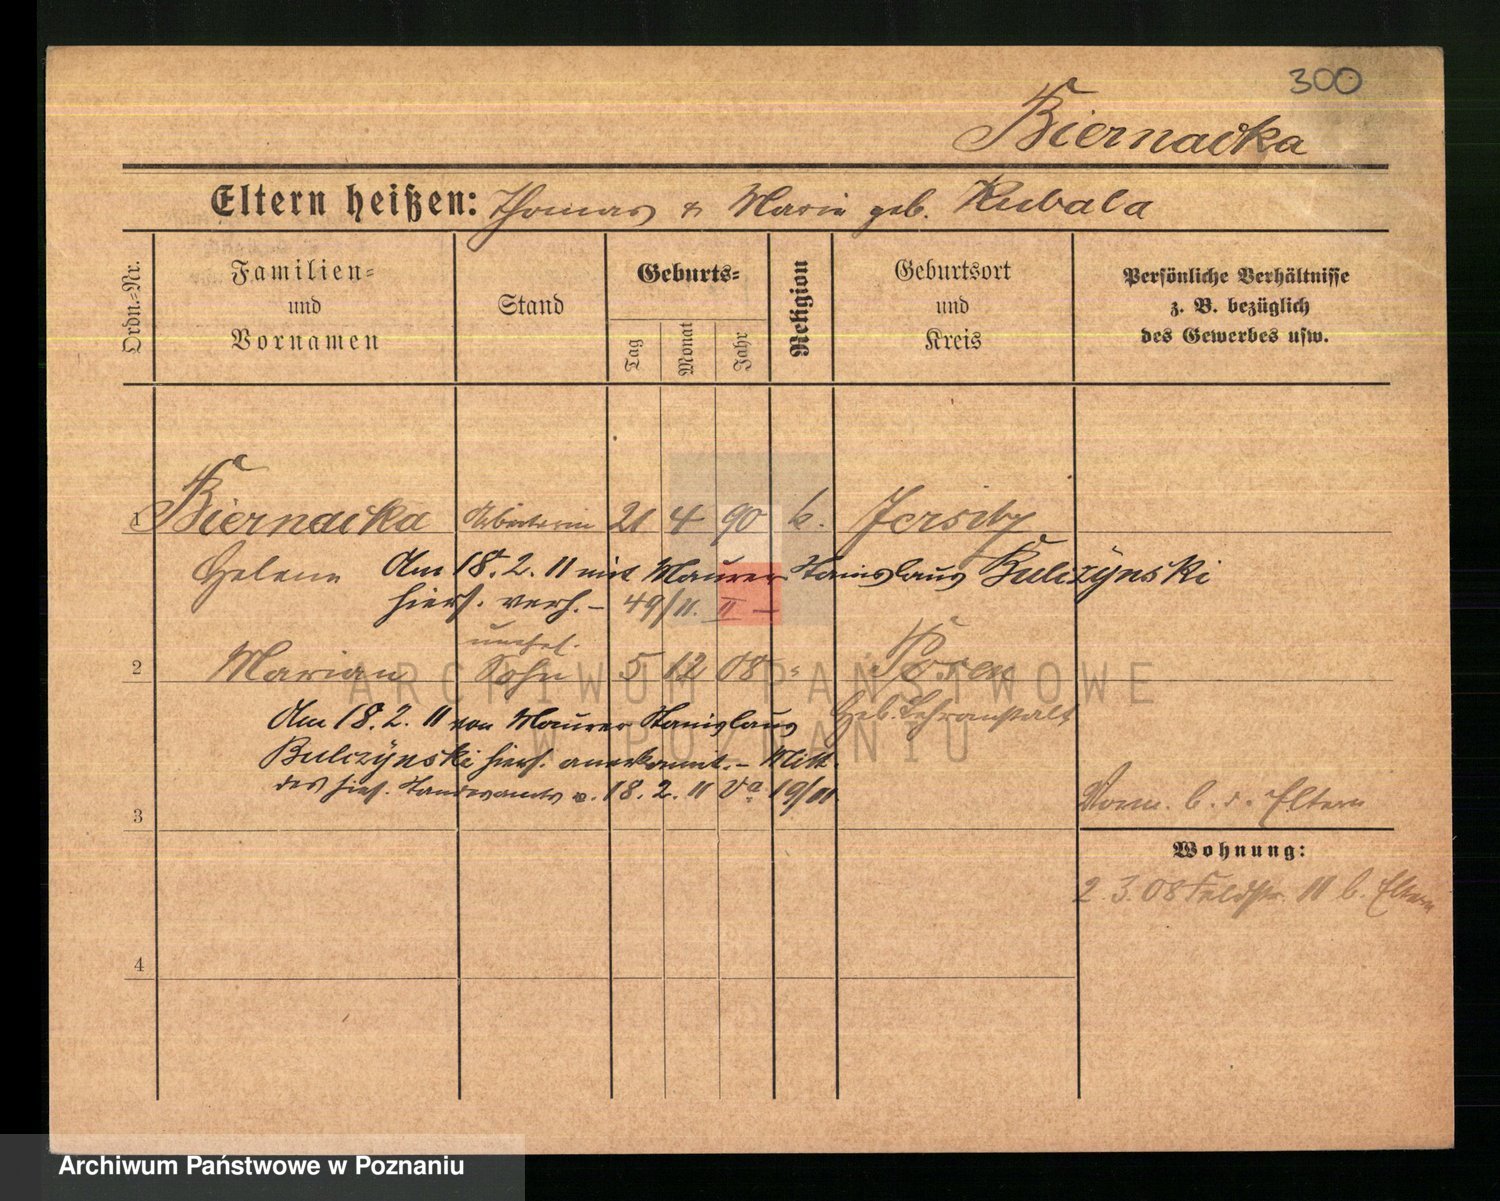 300
Biernacka
Eltern heißen: Thomas & Marie geb. Kubala
Ordn.-Nr.
Familien-
und
Vornamen
Stand
Geburts-
Tag
Monat
Jahr
Religion
Geburtsort
und
Kreis
Persönliche Verhältnisse
z. B. bezüglich
des Gewerbes usw.
1 Biernacka Arbeiterin 21 4 90 k. Jersitz
Helene Am 18. 2. 11 mit Maurer Stanislaus Kulczÿnski
hiers. verh. – 49/11. II –
unehel.
2 Marian Sohn 5 12 08 " Posen
Heb. Lehranstalt
Am 18. 2. 11 von Maurer Stanislaus
Kulczÿnski hiers. anerkannt. – Mitt.
des hies. Standesamts v. 18. 2. 11 19/11
3
Vorm. b. d. Eltern
Wohnung:
2. 3. 08 Feldstr. 11 b. Eltern
4
ARCHIWUM PAŃSTWOWE
W POZNANIU
Archiwum Państwowe w Poznaniu